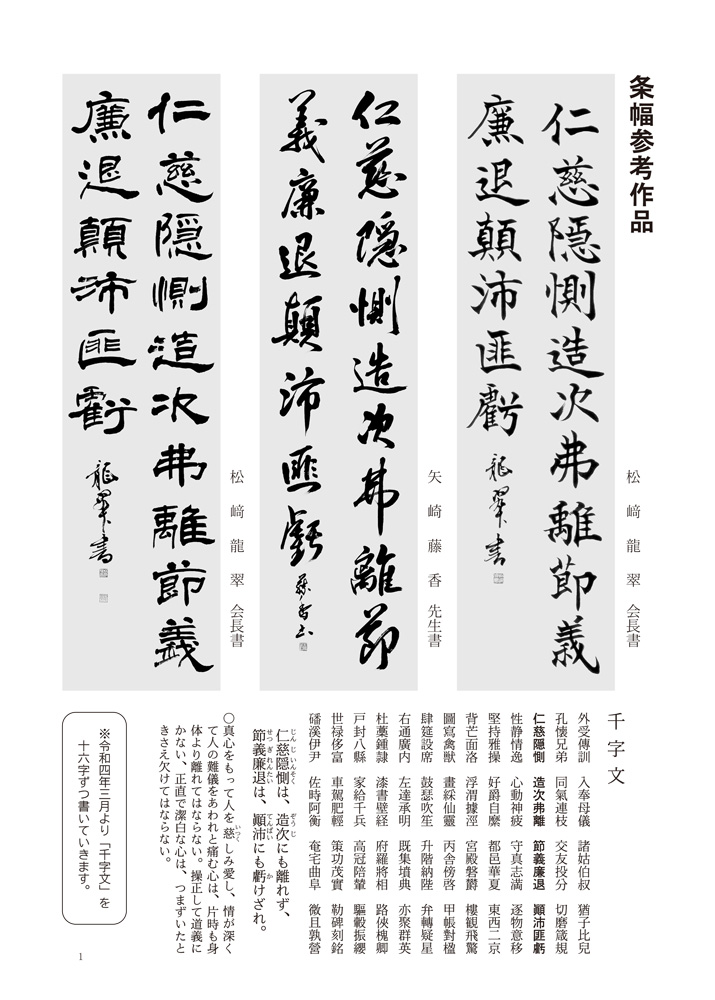 条幅参考作品
仁慈隠惻造次弗離節義
廉退顛沛匪虧
龍翠書
松﨑龍翠 会長書
仁慈隠惻造次弗離節
義廉退顛沛匪虧
藤香書
矢崎藤香 先生書
仁慈隠惻造次弗離節義
廉退顛沛匪虧
龍翠書
松﨑龍翠 会長書
千字文
外受傳訓 入奉母儀 諸姑伯叔 猶子比兒
孔懐兄弟 同氣連枝 交友投分 切磨箴規
仁慈隠惻 造次弗離 節義廉退 顚沛匪虧
性静情逸 心動神疲 守真志満 逐物意移
堅持雅操 好爵自縻 都邑華夏 東西二京
背芒面洛 浮渭據涇 宮殿磐爵 樓觀飛驚
圖寫禽獣 畫綵仙靈 丙舎傍啓 甲帳對楹
肆筵設席 鼓瑟吹笙 升階納陛 弁轉疑星
右通廣内 左達承明 既集墳典 亦聚群英
杜藁鍾隷 漆書壁経 府羅將相 路俠槐卿
戸封八縣 家給千兵 高冠陪輦 驅轂振纓
世禄侈富 車駕肥輕 策功茂實 勒碑刻銘
磻溪伊尹 佐時阿衡 奄宅曲阜 微旦孰營
仁慈隠惻は、造次にも離れず、
じんじいんそく ぞうじ
節義廉退は、顚沛にも虧けざれ。
せつぎれんたい てんぱい か
〇真心をもって人を慈しみ愛し、情が深く
いつく
て人の難儀をあわれと痛む心は、片時も身
体より離れてはならない。操正して道義に
かない、正直で潔白な心は、つまずいたと
きさえ欠けてはならない。
※令和四年三月より「千字文」を
十六字ずつ書いていきます。
1